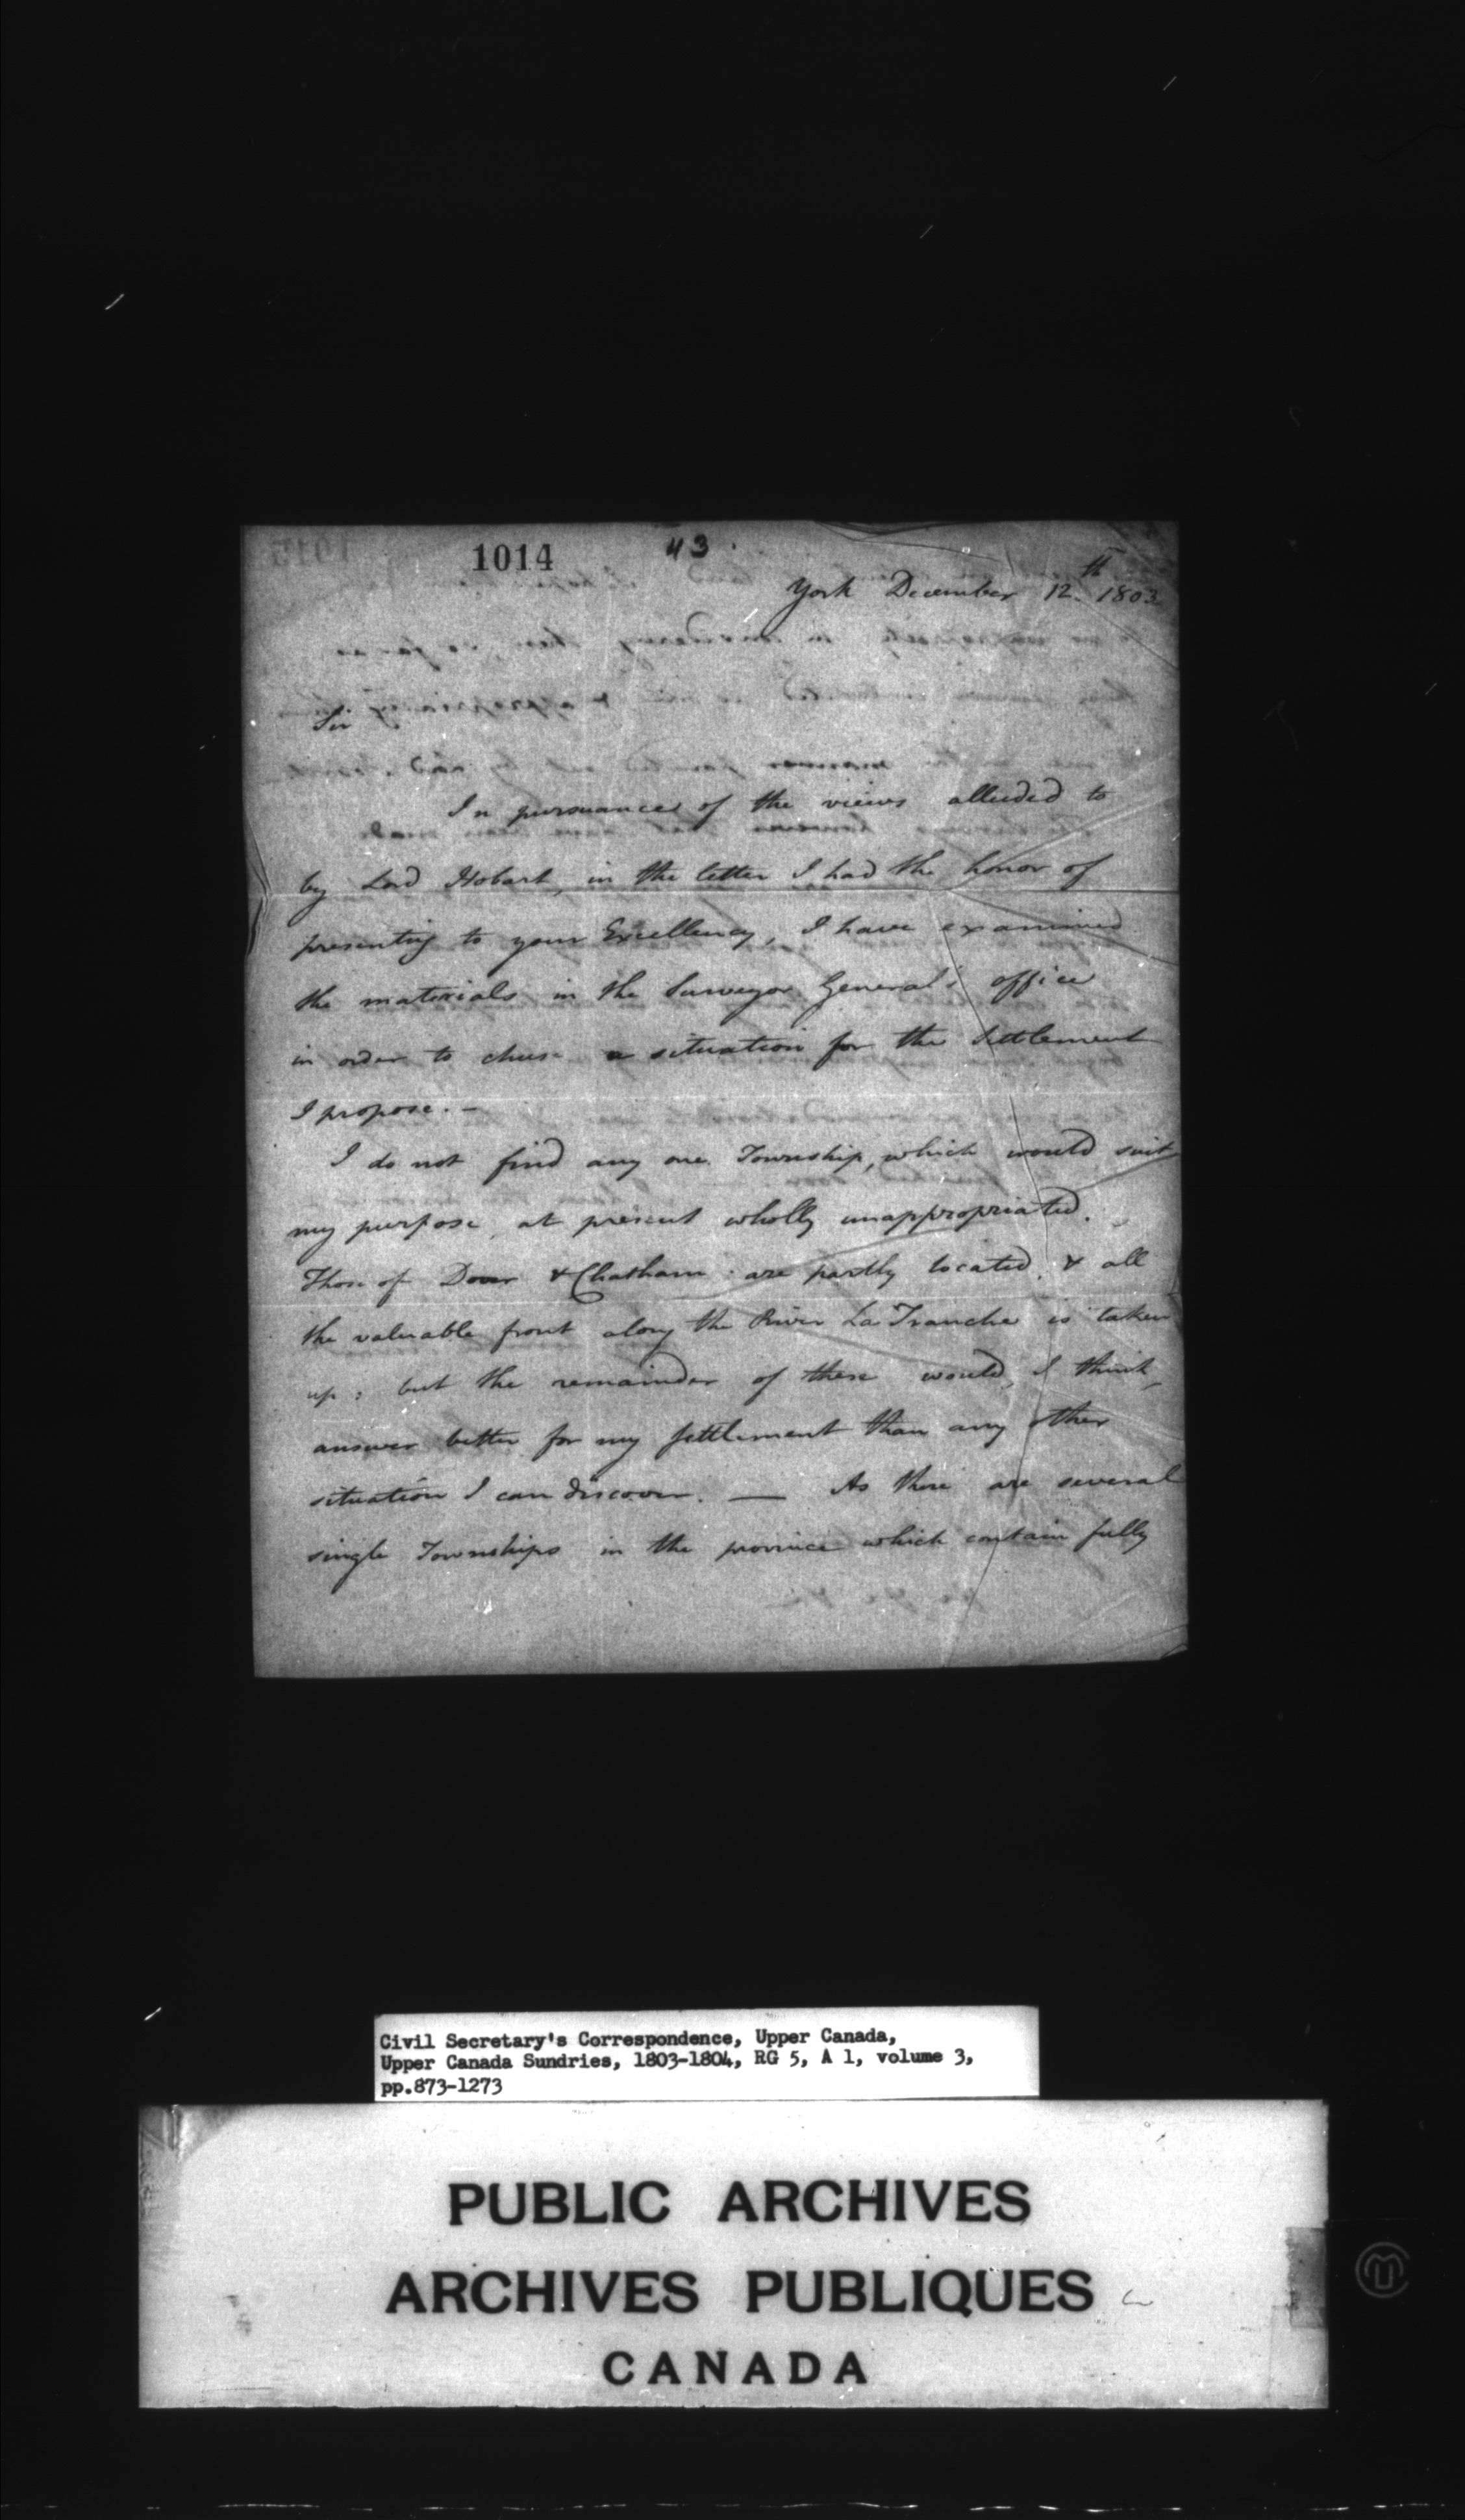 1014
43.
York December 12th 1803
Sir
In pursuance of the views alluded to
by Lord Hobart, in the letter I had the honor of
presenting to your Excellency, I have examined
the materials in the Surveyor General's office
in order to chuse a situation for the Settlement
I propose. —
I do not find any one Township, which would suit
my purpose, at present wholly unappropriated.
Those of Dover & Chatham are partly located, & all
the valuable front along the River La Tranche is taken
up; but the remainder of these would, I think,
answer better for my settlement than any other
situation I can discover. — As there are several
single Townships in the province which contain fully
Civil Secretary's Correspondence, Upper Canada,
Upper Canada Sundries, 1803-1804, RG 5, A 1, volume 3,
pp.873-1273
PUBLIC ARCHIVES
ARCHIVES PUBLIQUES
CANADA